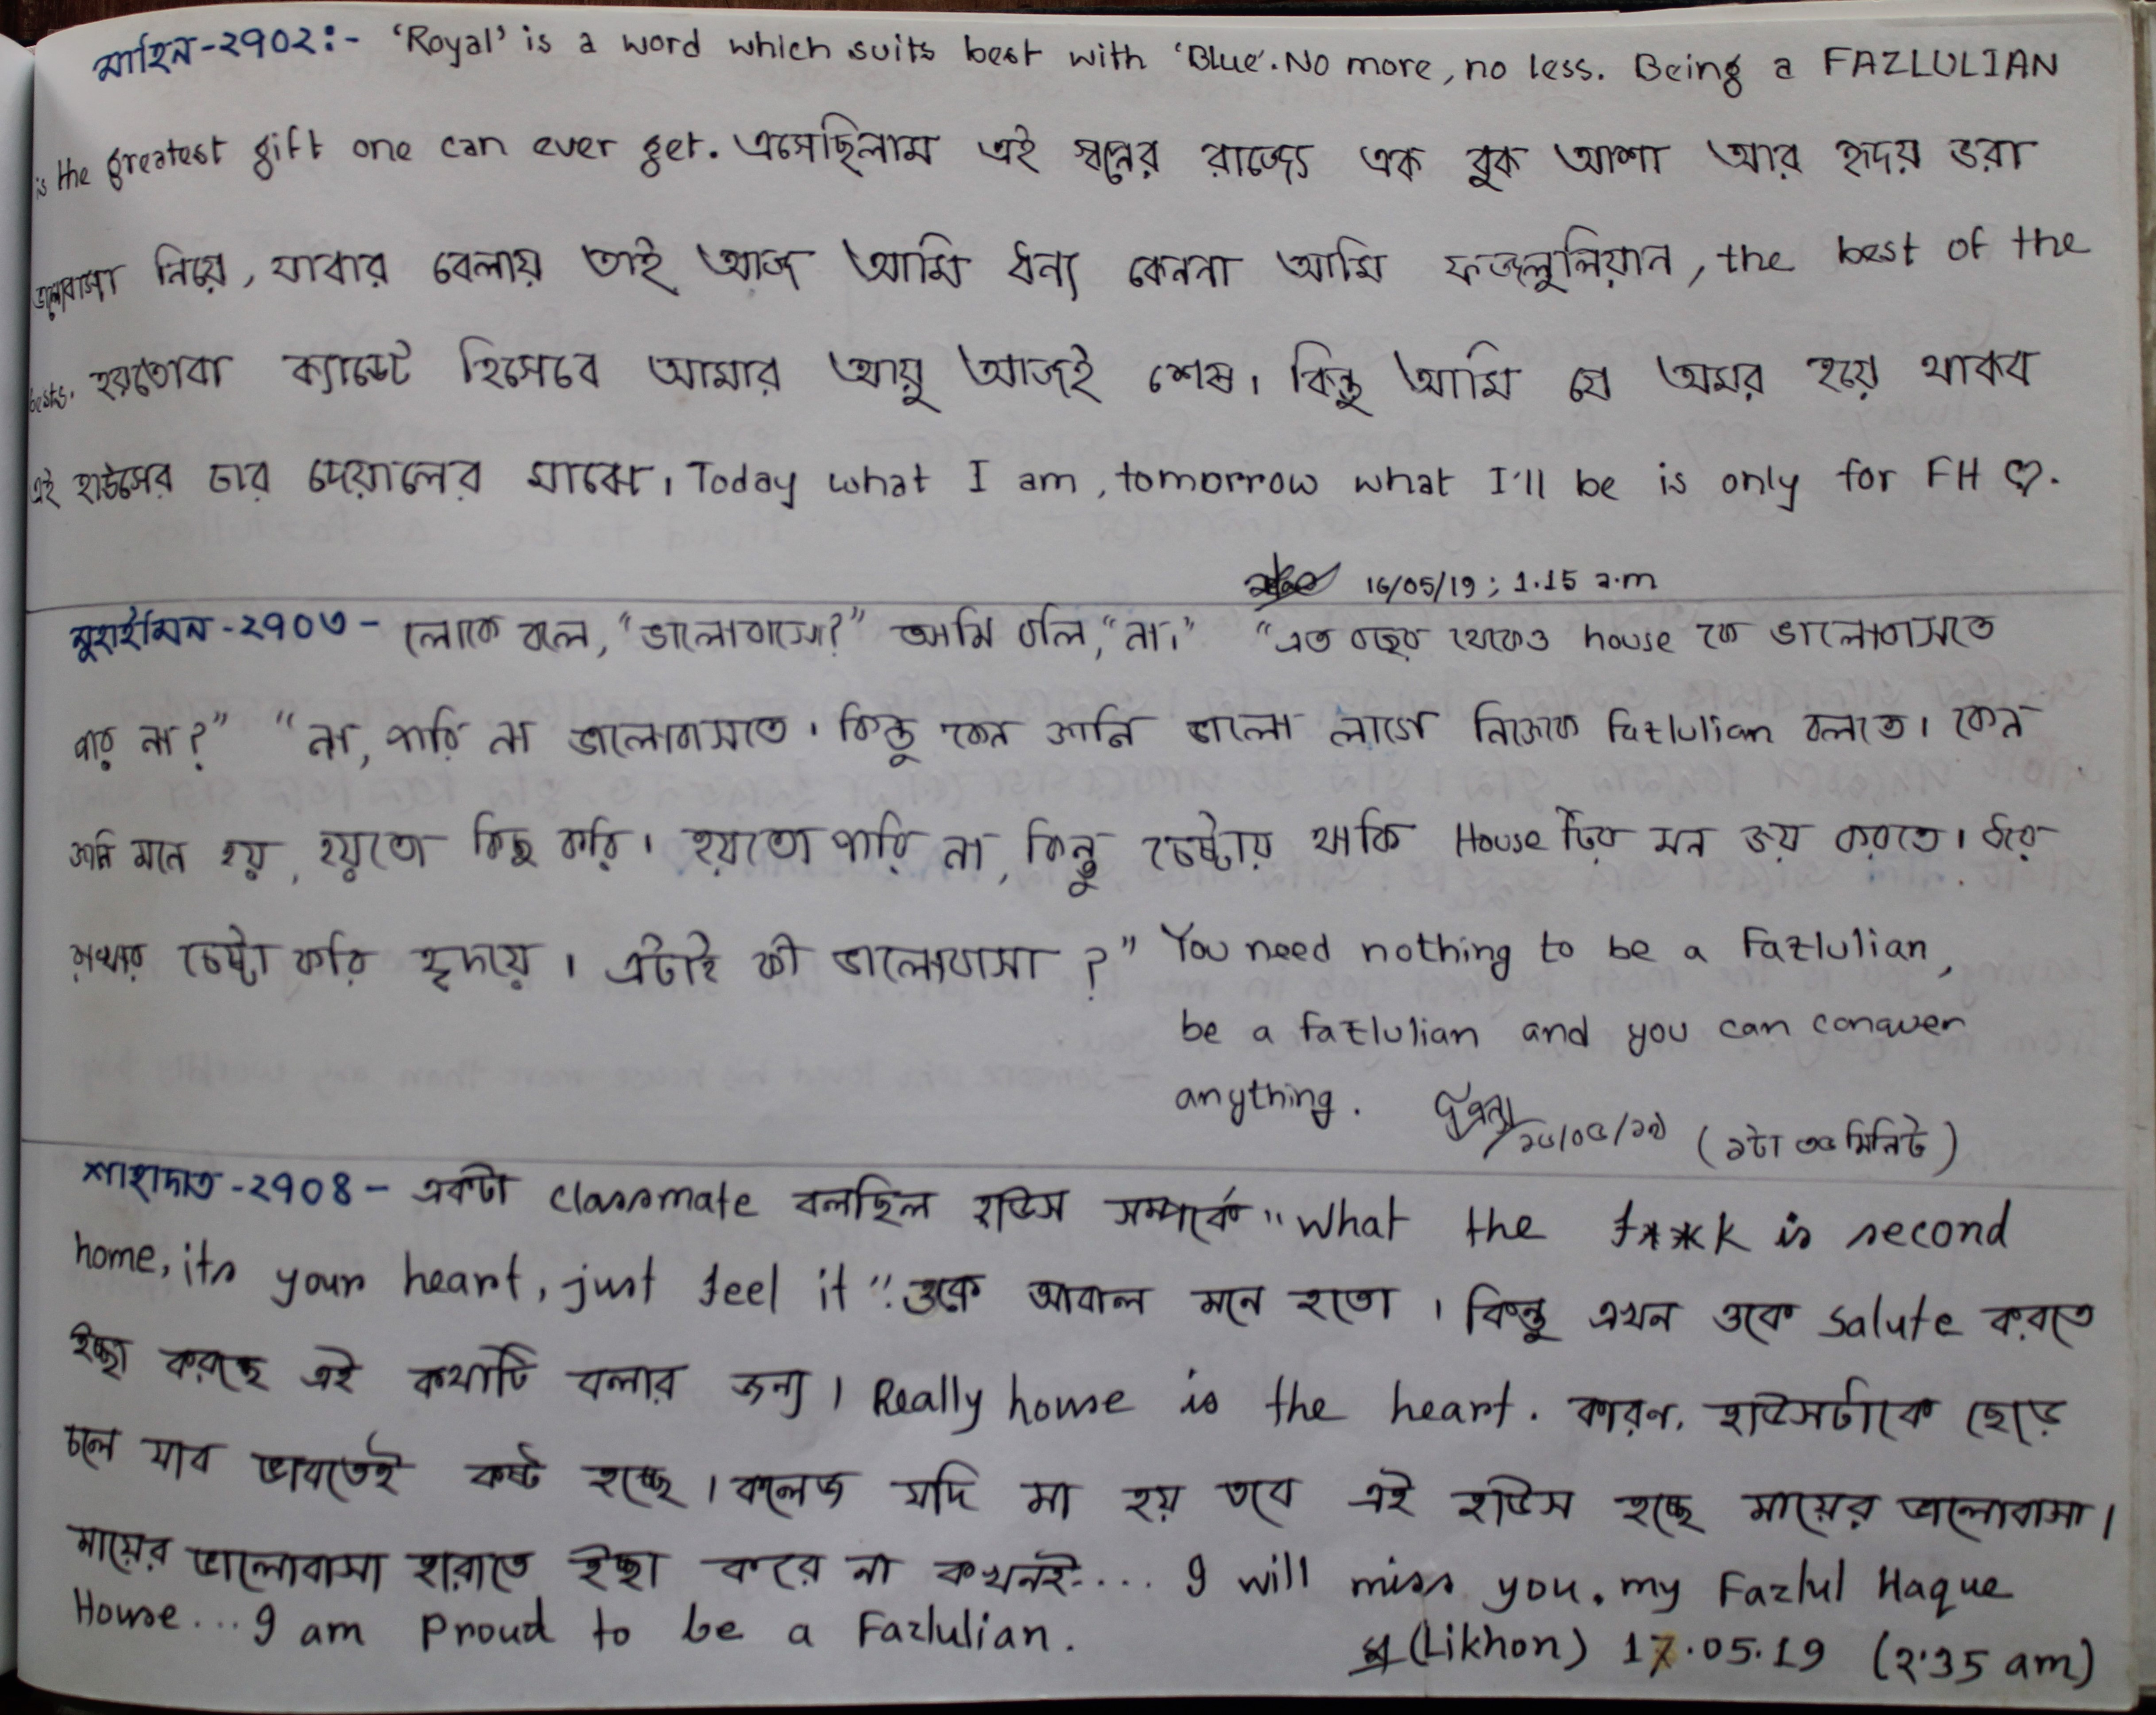 মাহিন-২৭০২:- 'Royal' is a word which suits best with 'Blue'. No more, no less. Being a FAZLULIAN
is the greatest gift one can ever get. এসেছিলাম এই স্বপ্নের রাজ্যে এক বুক আশা আর হৃদয় ভরা
ভালোবাসা নিয়ে, যাবার বেলায় তাই আজ আমি ধন্য কেননা আমি ফজলুলিয়ান, the best of the
bests. হয়তোবা ক্যাডেট হিসেবে আমার আয়ু আজই শেষ। কিন্তু আমি যে অমর হয়ে থাকব
এই হাউসের চার দেয়ালের মাঝে। Today what I am, tomorrow what I'll be is only for FH ♡.
16/05/19 ; 1.15 a.m
মুহাইমিন-২৭০৩ - লোকে বলে, "ভালোবাসো?" আমি বলি, "না।" "এত বছর থেকেও house কে ভালোবাসতে
পার না?" "না, পারি না ভালোবাসতে। কিন্তু কেন জানি ভালো লাগে নিজেকে Fazlulian বলতে। কেন
জানি মনে হয়, হয়তো কিছু করি। হয়তো পারি না, কিন্তু চেষ্টায় থাকি House টির মন জয় করতে। ধরে
রাখার চেষ্টা করি হৃদয়ে। এটাই কী ভালোবাসা?" You need nothing to be a Fazlulian,
be a fazlulian and you can conquer
anything. ১৬/০৫/১৯ (১টা ৩৫ মিনিট)
শাহাদাত-২৭০৪ - একটা classmate বলছিল হাউস সম্পর্কে "What the f**k is second
home, its your heart, just feel it". ওকে আবাল মনে হতো। কিন্তু এখন ওকে salute করতে
ইচ্ছা করছে এই কথাটি বলার জন্য। Really house is the heart. কারণ, হাউসটাকে ছেড়ে
চলে যাব ভাবতেই কষ্ট হচ্ছে। কলেজ যদি মা হয় তবে এই হাউস হচ্ছে মায়ের ভালোবাসা।
মায়ের ভালোবাসা হারাতে ইচ্ছা করে না কখনই.... I will miss you. my Fazlul Haque
House... I am Proud to be a Fazlulian. (Likhon) 17.05.19 (2.35 am)